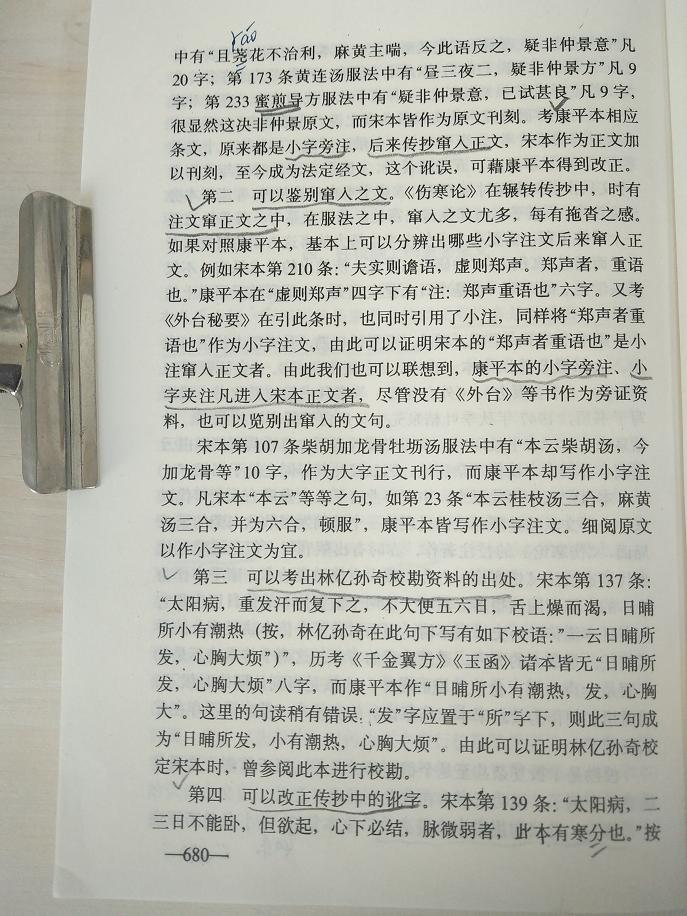 ráo
中有“且荛花不治利，麻黄主喘，今此语反之，疑非仲景意”凡
20 字；第 173 条黄连汤服法中有“昼三夜二，疑非仲景方”凡 9
字；第 233 蜜煎导方服法中有“疑非仲景意，已试甚良”凡 9 字，
很显然这决非仲景原文，而宋本皆作为原文刊刻。考康平本相应
条文，原来都是小字旁注，后来传抄窜入正文，宋本作为正文加
以刊刻，至今成为法定经文，这个讹误，可藉康平本得到改正。
第二　可以鉴别窜入之文。《伤寒论》在辗转传抄中，时有
注文窜正文之中，在服法之中，窜入之文尤多，每有拖沓之感。
如果对照康平本，基本上可以分辨出哪些小字注文后来窜入正
文。例如宋本第 210 条：“夫实则谵语，虚则郑声。郑声者，重语
也。”康平本在“虚则郑声”四字下有“注：郑声重语也”六字。又考
《外台秘要》在引此条时，也同时引用了小注，同样将“郑声者重
语也”作为小字注文，由此可以证明宋本的“郑声者重语也”是小
注窜入正文者。由此我们也可以联想到，康平本的小字旁注、小
字夹注凡进入宋本正文者，尽管没有《外台》等书作为旁证资
料，也可以览别出窜入的文句。
宋本第 107 条柴胡加龙骨牡坜汤服法中有“本云柴胡汤，今
加龙骨等”10 字，作为大字正文刊行，而康平本却写作小字注
文。凡宋本“本云”等等之句，如第 23 条“本云桂枝汤三合，麻黄
汤三合，并为六合，顿服”，康平本皆写作小字注文。细阅原文
以作小字注文为宜。
第三　可以考出林亿孙奇校勘资料的出处。宋本第 137 条：
“太阳病，重发汗而复下之，不大便五六日，舌上燥而渴，日晡
所小有潮热（按，林亿孙奇在此句下写有如下校语：”一云日晡所
发，心胸大烦”）”，历考《千金翼方》《玉函》诸本皆无“日晡所
发，心胸大烦”八字，而康平本作“日晡所小有潮热，发，心胸
大”。这里的句读稍有错误：“发”字应置于“所”字下，则此三句成
为“日晡所发，小有潮热，心胸大烦”。由此可以证明林亿孙奇校
定宋本时，曾参阅此本进行校勘。
第四　可以改正传抄中的讹字。宋本第 139 条：“太阳病，二
三日不能卧，但欲起，心下必结，脉微弱者，此本有寒分也。”按
—680—